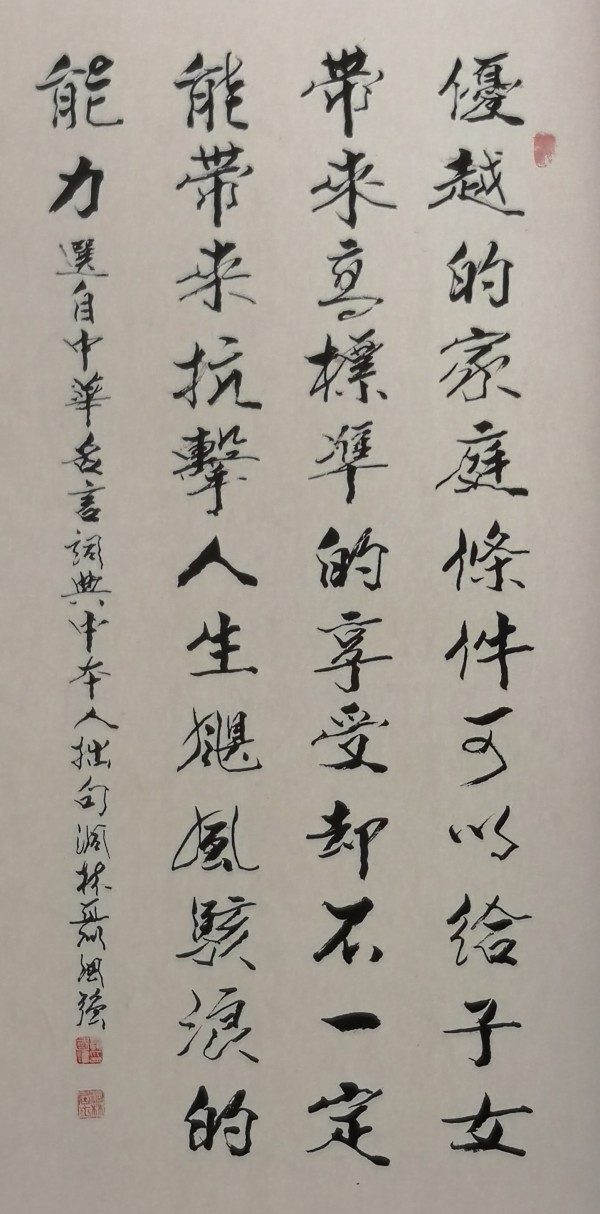 優越的家庭條件可以給子女
帶來高標準的享受却不一定
能帶來抗擊人生颶風駭浪的
能力 選自中華名言詞典中本人拙句 林 強